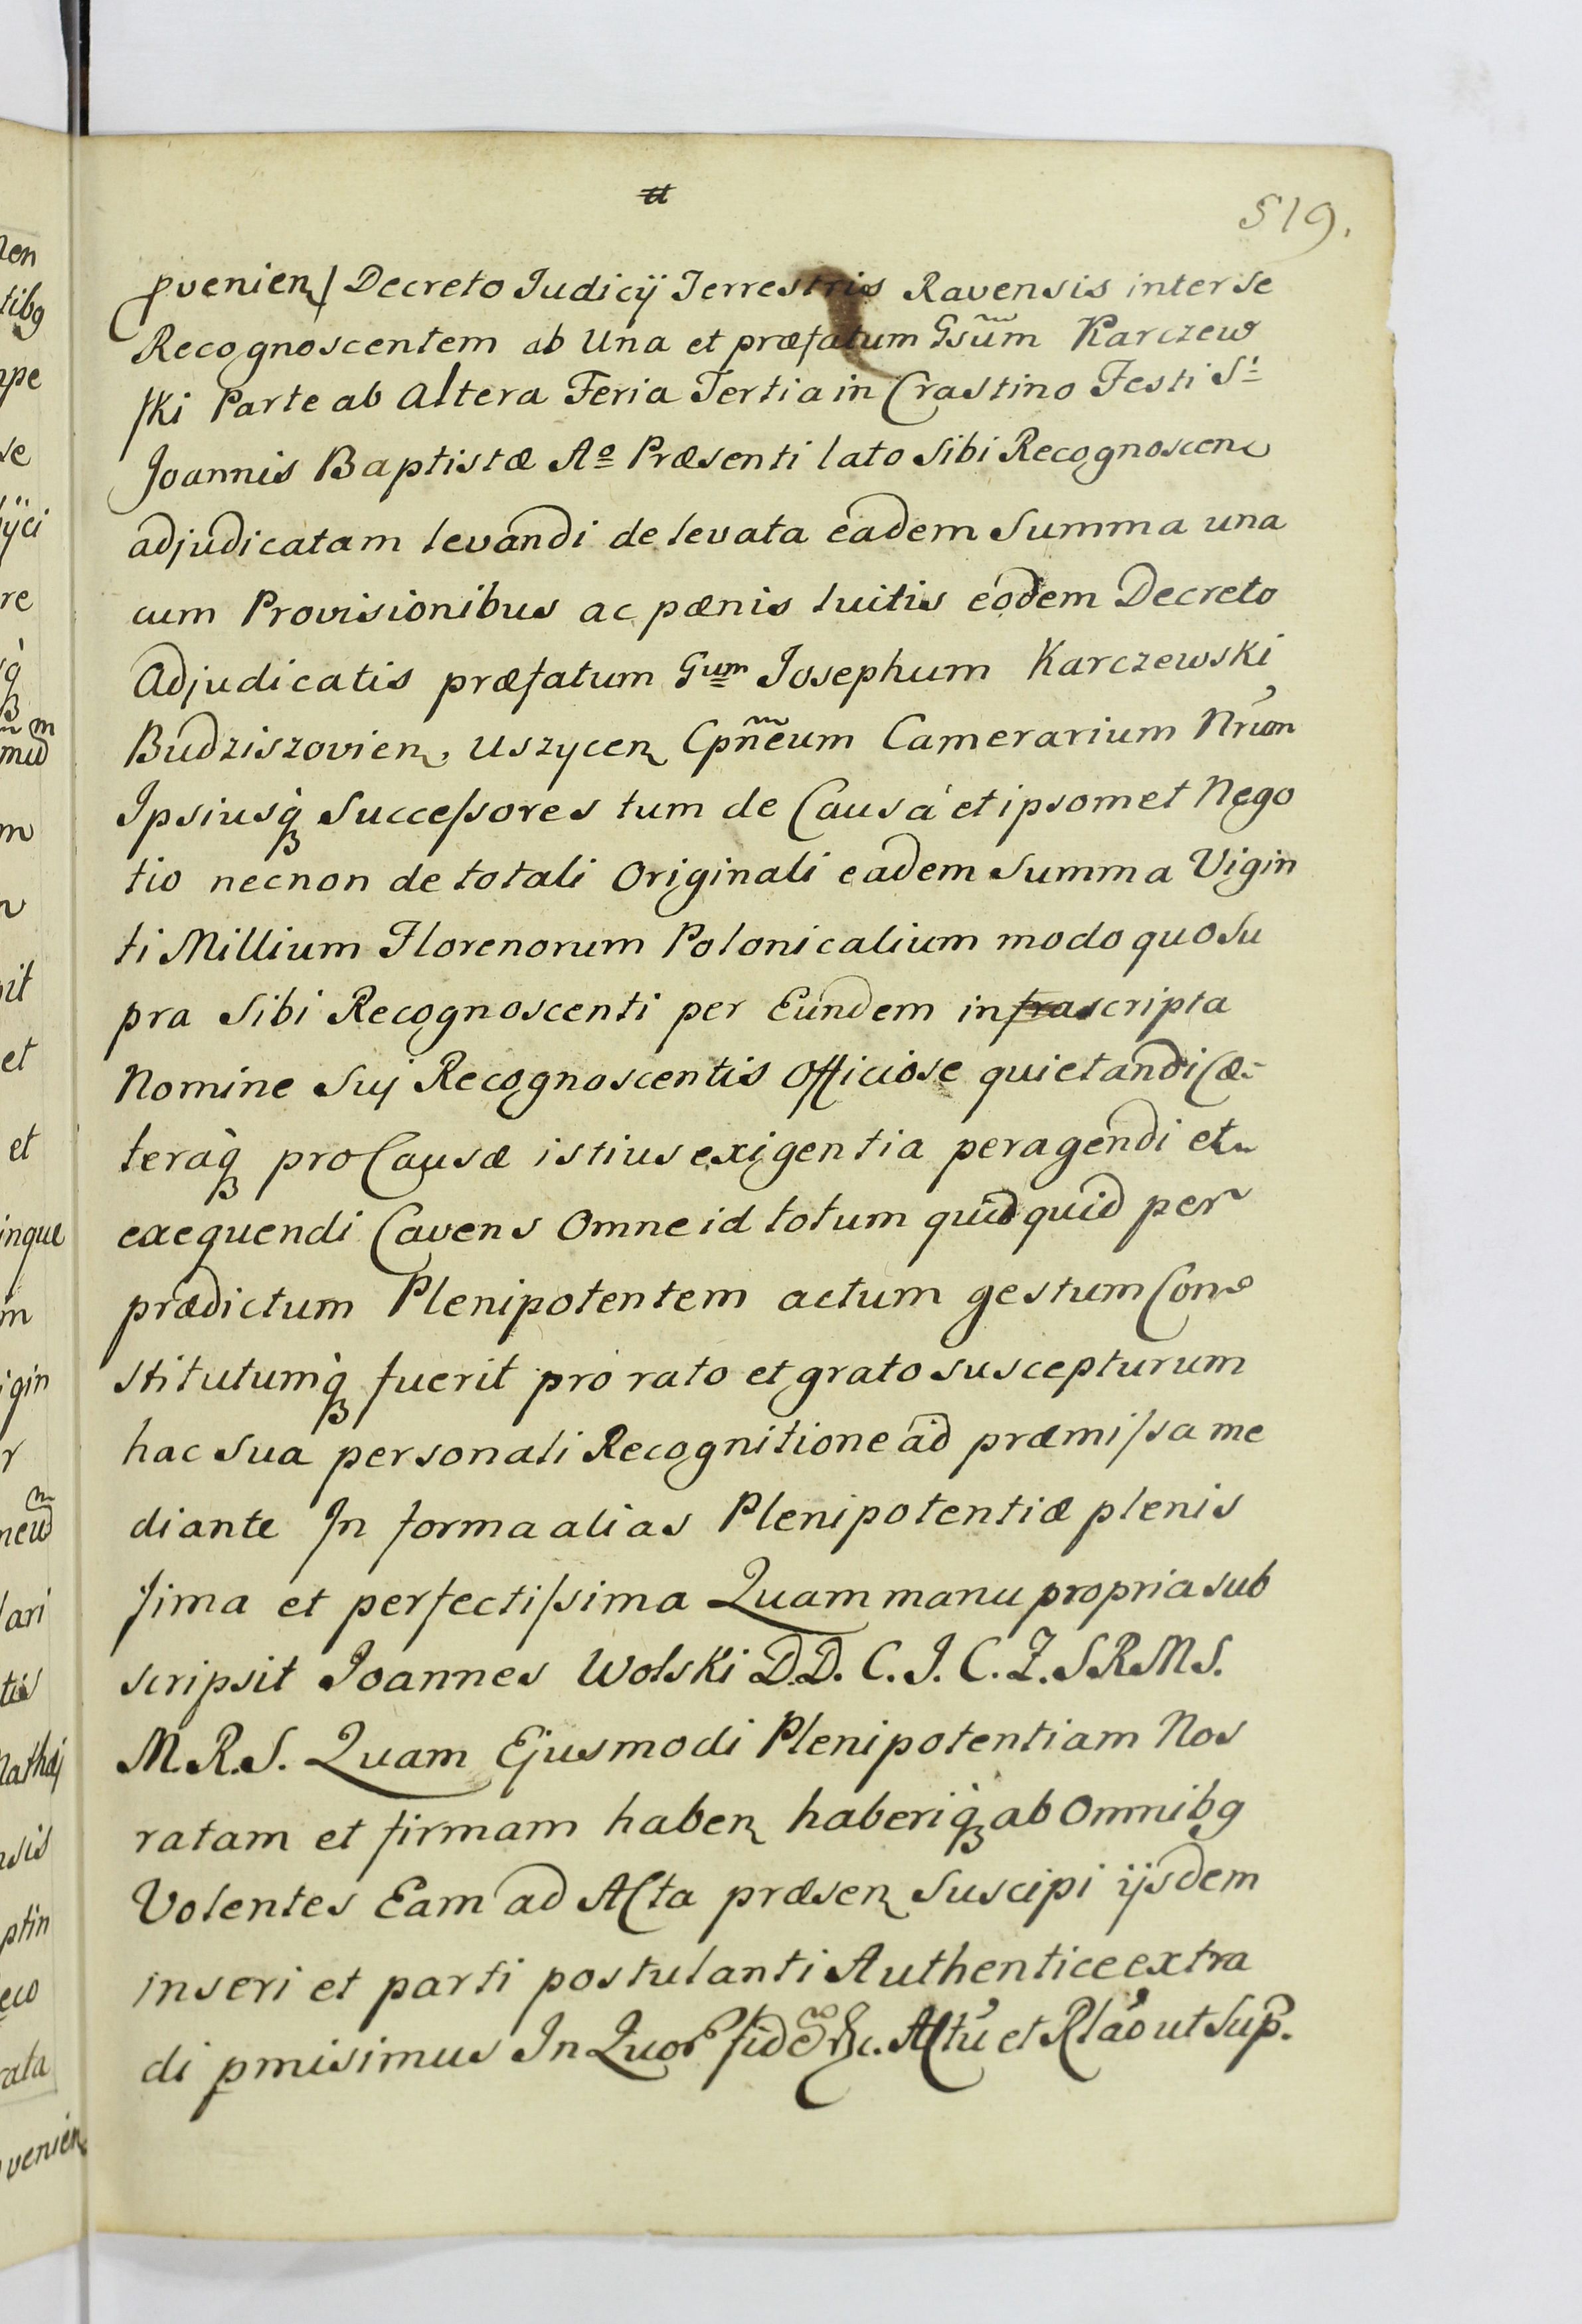 519.
pvenien/ Decreto Judicÿ Terrestris Ravensis inter se
Recognoscentem ab Una et præfatum Gsum Karczew
ski Parte ab altera Feria Tertia in Crastino Festi Sⁱ
Joannis Baptistæ Aº Præsenti lato Sibi Recognoscen
adjudicatam levandi de levata eadem Summa una
cum Provisionibus ac pænis luitis eodem Decreto
Adjudicatis præfatum Gum Josephum Karczewski
Budziszovien, Uszycen Cpn̄eum Camerarium Nrum
Ipsiusq Successores tum de Causa et ipsomet Nego
tio necnon de totali Originali eadem Summa Vigin
ti Millium Florenorum Polonicalium modo quo Su
pra Sibi Recognoscenti per Eundem infrascripta
Nomine Suj Recognoscentis Officiose quietandi Cæ-
teraq pro Causæ istius exigentia peragendi et
exequendi Cavens Omne id totum quidquid per
prædictum Plenipotentem actum gestum Con
stitutumq fuerit pro rato et grato suscepturum
hac Sua personali Recognitione ad præmissa me
diante In forma alias Plenipotentiæ plenis
sima et perfectissima Quam manu propria sub
scripsit Joannes Wolski D.D. C. J. C. Z. S R M S.
M. R. S. Quam Ejusmodi Plenipotentiam Nos
ratam et firmam haben haberiq ab Omnibg
Volentes Eam ad Acta præsen Suscipi ijsdem
inseri et parti postulanti Authentice extra
di pmisimus In Quor fid &c. Actu et Rlao ut Sup.